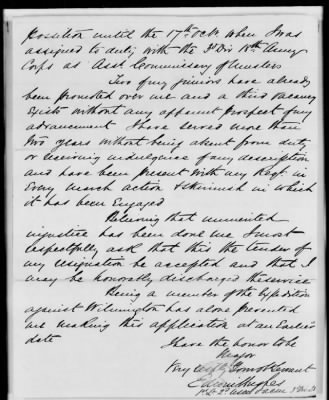 Position until the 17th Feb. when I was
assigned to duty with the 3d Div 10th Army
Corps as Asst Commissary of Musters
Two of my juniors have already
been promoted over me and a third vacancy
exists without any apparent prospect of my
advancement I have served more than
two years without being absent from duty
or receiving indulgence of any description
and have been present with my Regt. in
every march action & skirmish in which
it has been engaged
Believing that unmerited
injustice has been done me I most
respectfully ask that this the tender of
my resignation be accepted and that I
may be honorably discharged the service
Being a member of the Expedition
against Wilmington has alone prevented
me making this application at an earlier
date
I have the honor to be
Major
Very Respy Your obt Servant
Edwin Hughes
1st Lt 2d